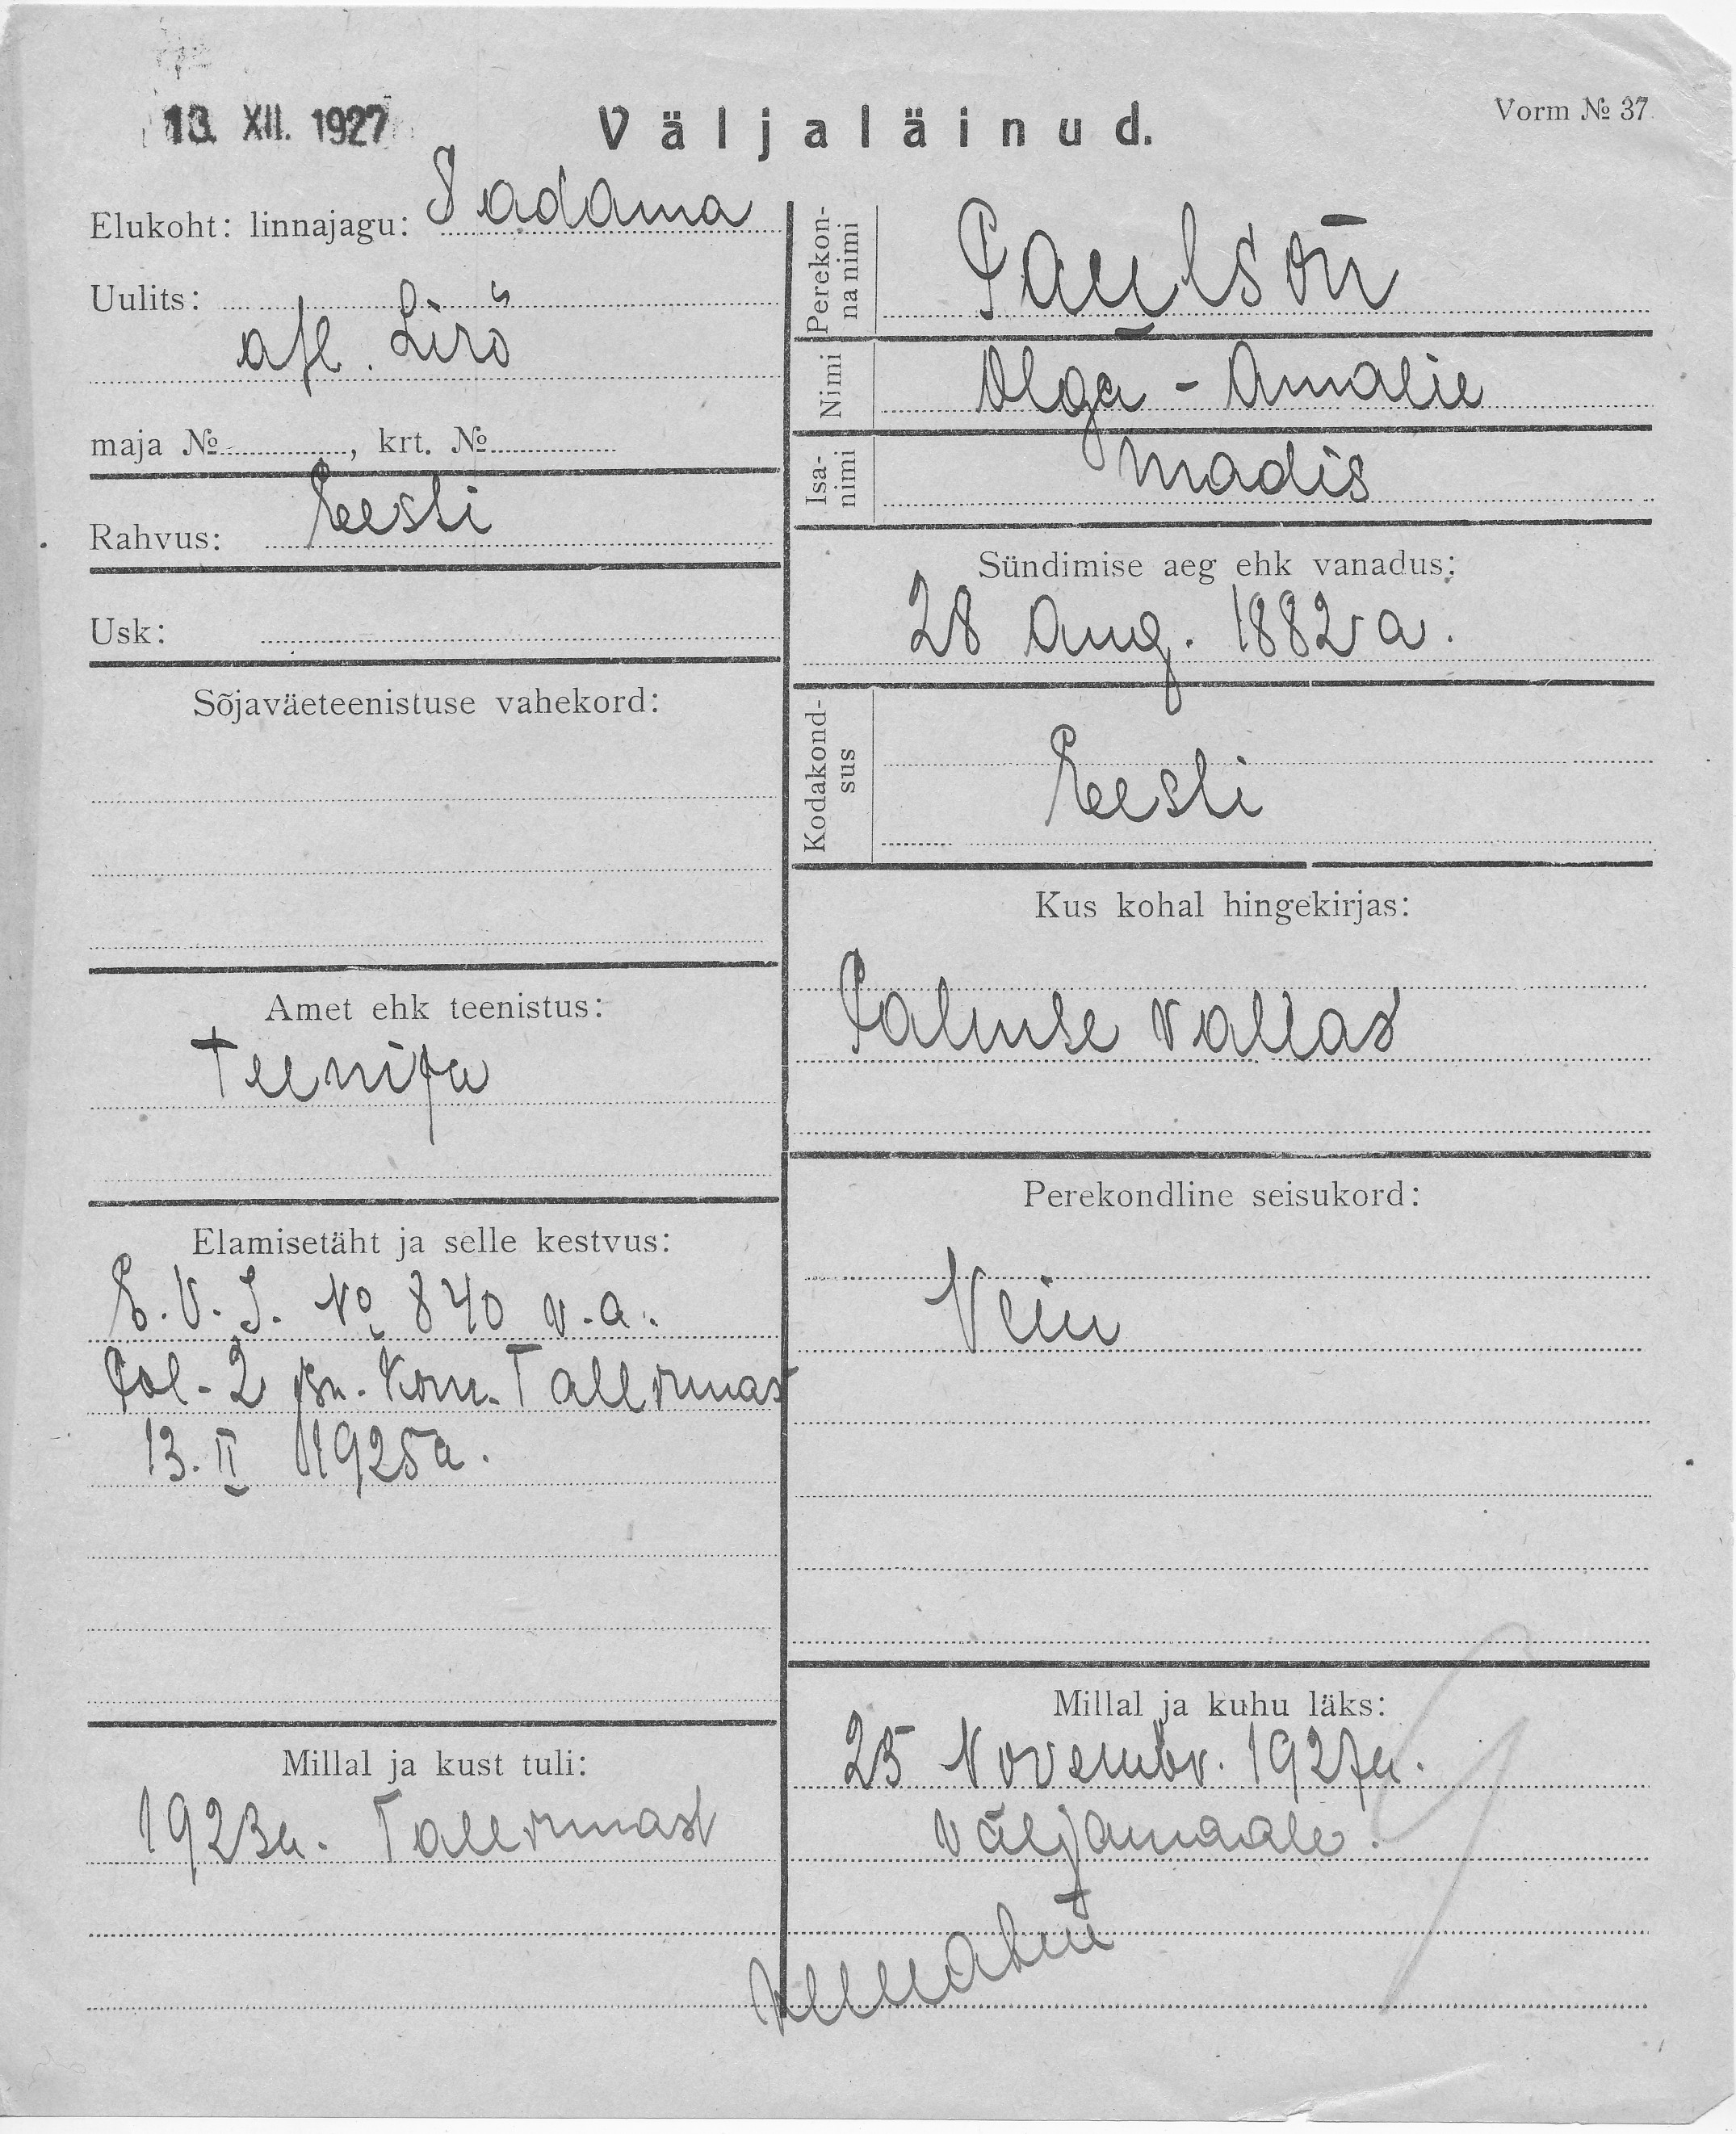 13. XII. 1927
Väljaläinud.
Vorm № 37.
Elukoht: linnajagu: Sadama
Uulits:
maja № , krt. №
Rahvus: Eesti
Usk:
Sõjaväeteenistuse vahekord:
Amet ehk teenistus:
Teenija
Elamisetäht ja selle kestvus:
E. V. I. № 840 v. a.
Pol. 2 jsk. Kom. Tallinnas
13. II 1925 a.
Millal ja kust tuli:
1923 a. Tallinnast
Perekonna nimi
Paulson
Nimi
Olga - Amalie
Isanimi
Madis
Sündimise aeg ehk vanadus:
28 Aug. 1882 a.
Kodakondsus
Eesti
Kus kohal hingekirjas:
Palmse vallas
Perekondline seisukord:
Neiu
Millal ja kuhu läks:
25 Novembr. 1927 a.
Väljamaale.